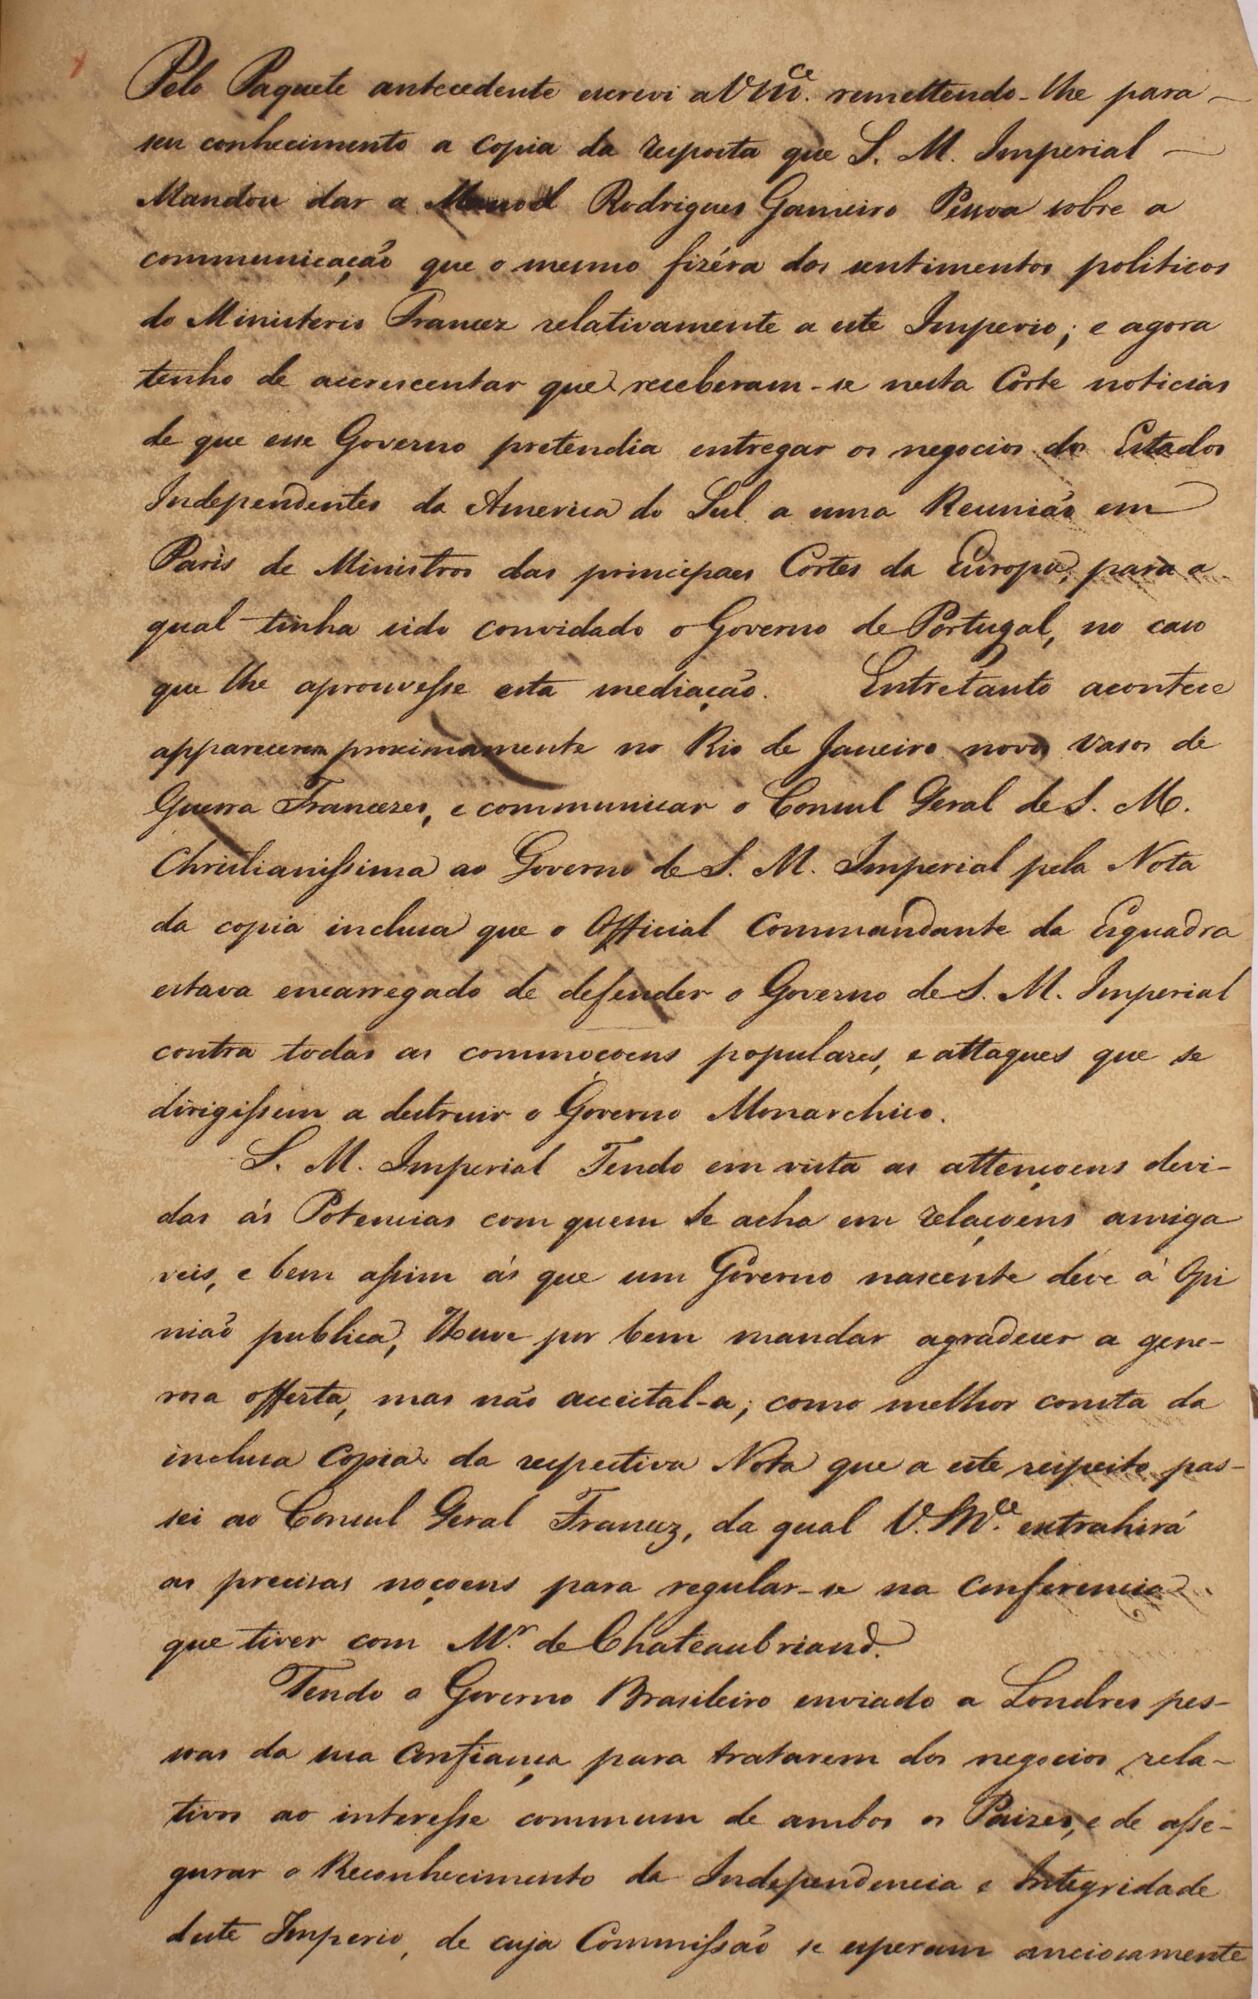 Pelo Paquete antecedente escrevi a VM.ce remettendo-lhe para
seu conhecimento a copia da resposta que S. M. Imperial
Mandou dar a Manoel Rodrigues Gameiro Pessoa sobre a
communicação que o mesmo fizéra dos sentimentos politicos
do Ministerio Francez relativamente a este Imperio; e agora
tenho de accrescentar que receberam-se nesta Corte noticias
de que esse Governo pretendia entregar os negocios dos Estados
Independentes da America do Sul a uma Reunião em
Paris de Ministros das principaes Cortes da Europa, para a
qual tinha sido convidado o Governo de Portugal, no caso
que lhe aprouvesse esta mediação. Entretanto acontece
apparecerem proximamente no Rio de Janeiro novos vasos de
Guerra Francezes, e communicar o Consul Geral de S. M.
Christianissima ao Governo de S. M. Imperial pela Nota
da copia inclusa que o Official Commandante da Esquadra
estava encarregado de defender o Governo de S. M. Imperial
contra todas as commoçoens populares, e attaques que se
dirigissem a destruir o Governo Monarchico.
S. M. Imperial Tendo em vista as attençoens devi-
das ás Potencias com quem Se acha em relaçoens amiga
veis, e bem assim ás que um Governo nascente deve á Opi
nião publica, Houve por bem mandar agradecer a gene-
rosa offerta, mas não acceital-a; como melhor consta da
inclusa Copia da respectiva Nota que a este respeito pas-
sei ao Consul Geral Francez, da qual V.M.ce extrahirá
as precisas noçoens para regular-se na conferencia
que tiver com M.r de Chateaubriand.
Tendo o Governo Brasileiro enviado a Londres pes-
soas da sua Confiança para tratarem dos negocios rela-
tivos ao interesse commum de ambos os Paizes, e de asse-
gurar o Reconhecimento da Independencia e Integridade
deste Imperio, de cuja Commissão se esperam anciosamente